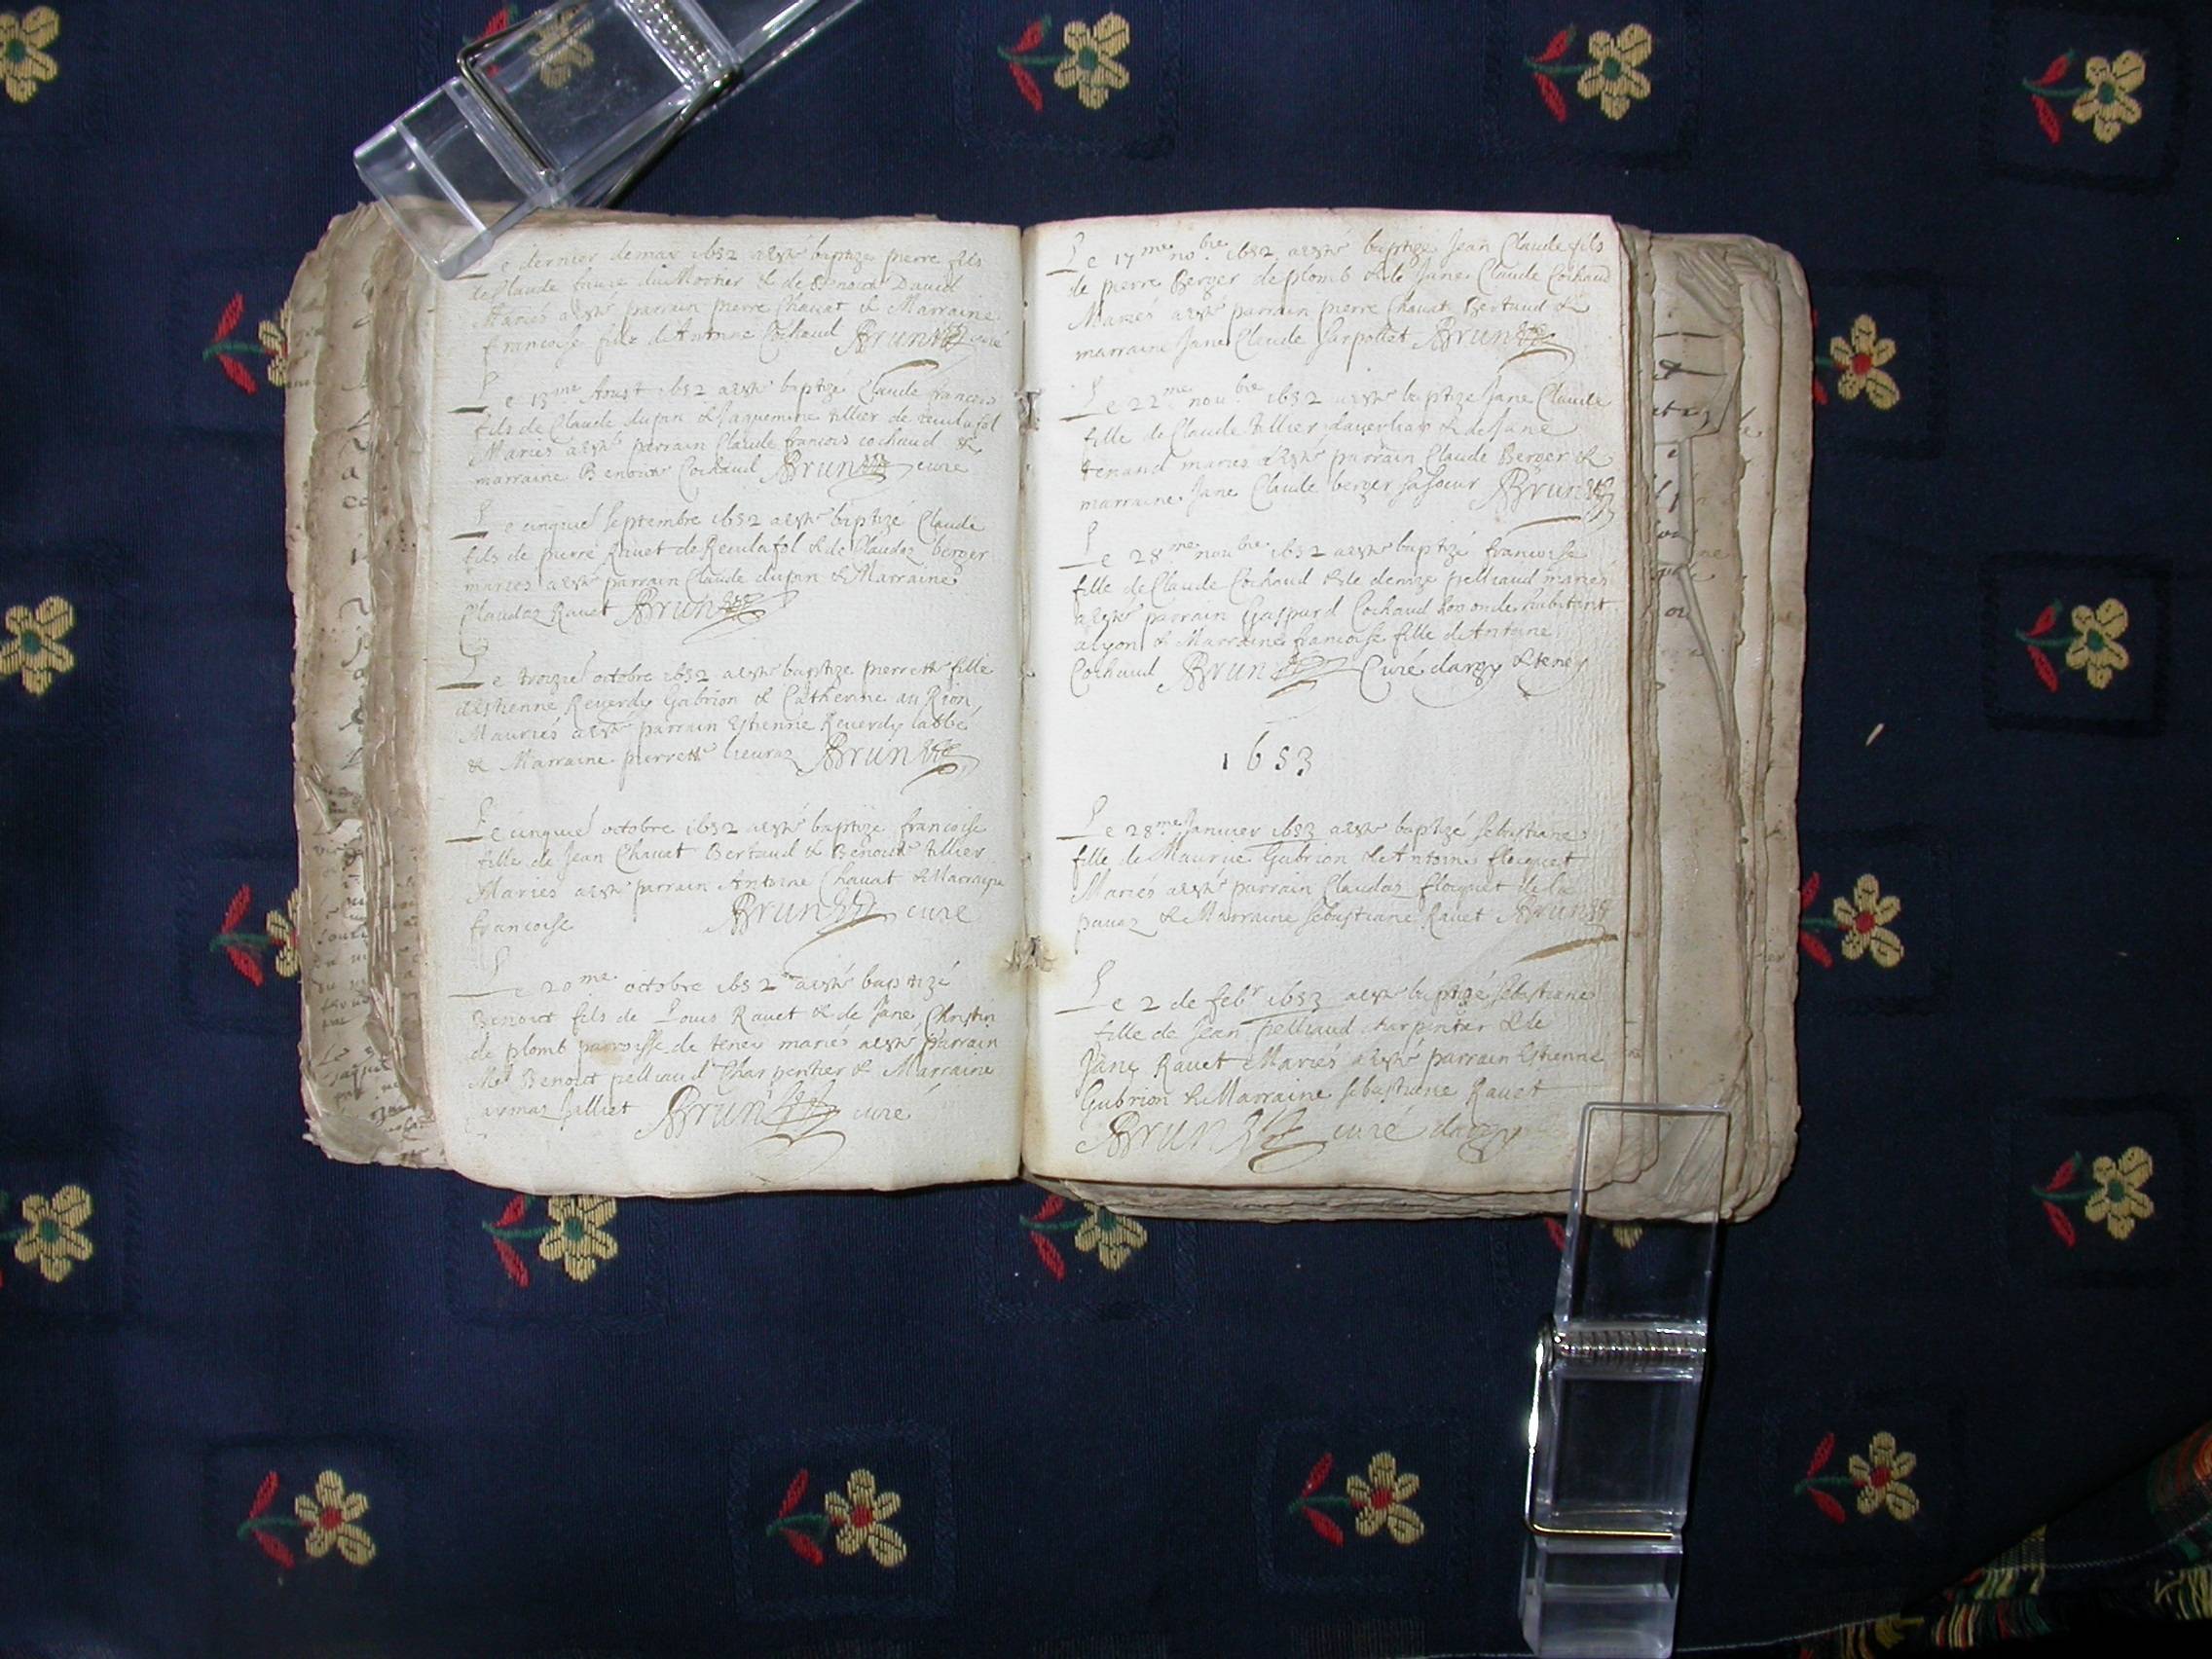 Le dernier de may 1652 a esté baptizé pierre fils
de Claude faure du Mortier & de Benoite David
Mariés a esté parrain pierre Chavat & Marraine
francoise fille d'Antoine Cochaud Brun curé
Le 13me Aoust 1652 a esté baptizé Claude francois
fils de Claude dujan & Jaquemine tillier de reculafol
Mariés a esté parrain Claude francois cochaud &
marraine Benoite Cochaud Brun curé
Le cinquié septembre 1652 a esté baptizé Claude
fils de pierre Ravet de Reculafol & de Claudaz berger
mariés a esté parrain Claude dujan & Marraine
Claudaz Ravet Brun
Le troizié octobre 1652 a esté baptizé pierrette fille
d'Estienne Reverdy Gabrion & Catherine du Rion
Mauriés a esté parrain Estienne Reverdy labbé
& Marraine pierrette lieuraz Brun
Le cinquié octobre 1652 a esté baptizé francoise
fille de Jean Chavat Bertaud & Benoite tillier
Mariés a esté parrain Antoine Chavat & Marraine
francoise Brun curé
Le 20me octobre 1652 a esté baptizé
Benoict fils de Louis Ravet & de Jane Christin
de plomb parroisse de teney mariés a esté parrain
Me Benoict pelliaud Charpentier & Marraine
Jalliet Brun curé
Le 17me nobre 1652 a esté baptizé Jean Claude fils
de pierre Berger de plomb & de Jane Claude Cochaud
Mariés a esté parrain pierre Chavat Bertaud &
marraine Jane Claude sarpollet Brun
Le 22me noubre 1652 a esté baptizé Jane Claude
fille de Claude tillier daverliaz & de Jane
tenand mariés a esté parrain Claude Berger &
marraine Jane Claude berger sa soeur Brun
Le 28me noubre 1652 a esté baptizé francoise
fille de Claude Cochaud & de denize pelliaud mariés
a esté parrain Gaspard Cochaud son oncle habitant
a lyon & Marraine francoise fille d'Antoine
Cochaud Brun Curé dargy & teney
1653
Le 28me Janvier 1653 a esté baptizé sebastiane
fille de Maurice Gabrion & Antoine floquet
Mariés a esté parrain Claudaz floquet de la
pavaz & Marraine sebastiane Ravet Brun
Le 2 de febr 1653 a esté baptizé sebastiane
fille de Jean pelliaud charpentier & de
Jane Ravet Mariés a esté parrain Estienne
Gabrion & Marraine sebastiane Ravet
Brun curé dargy